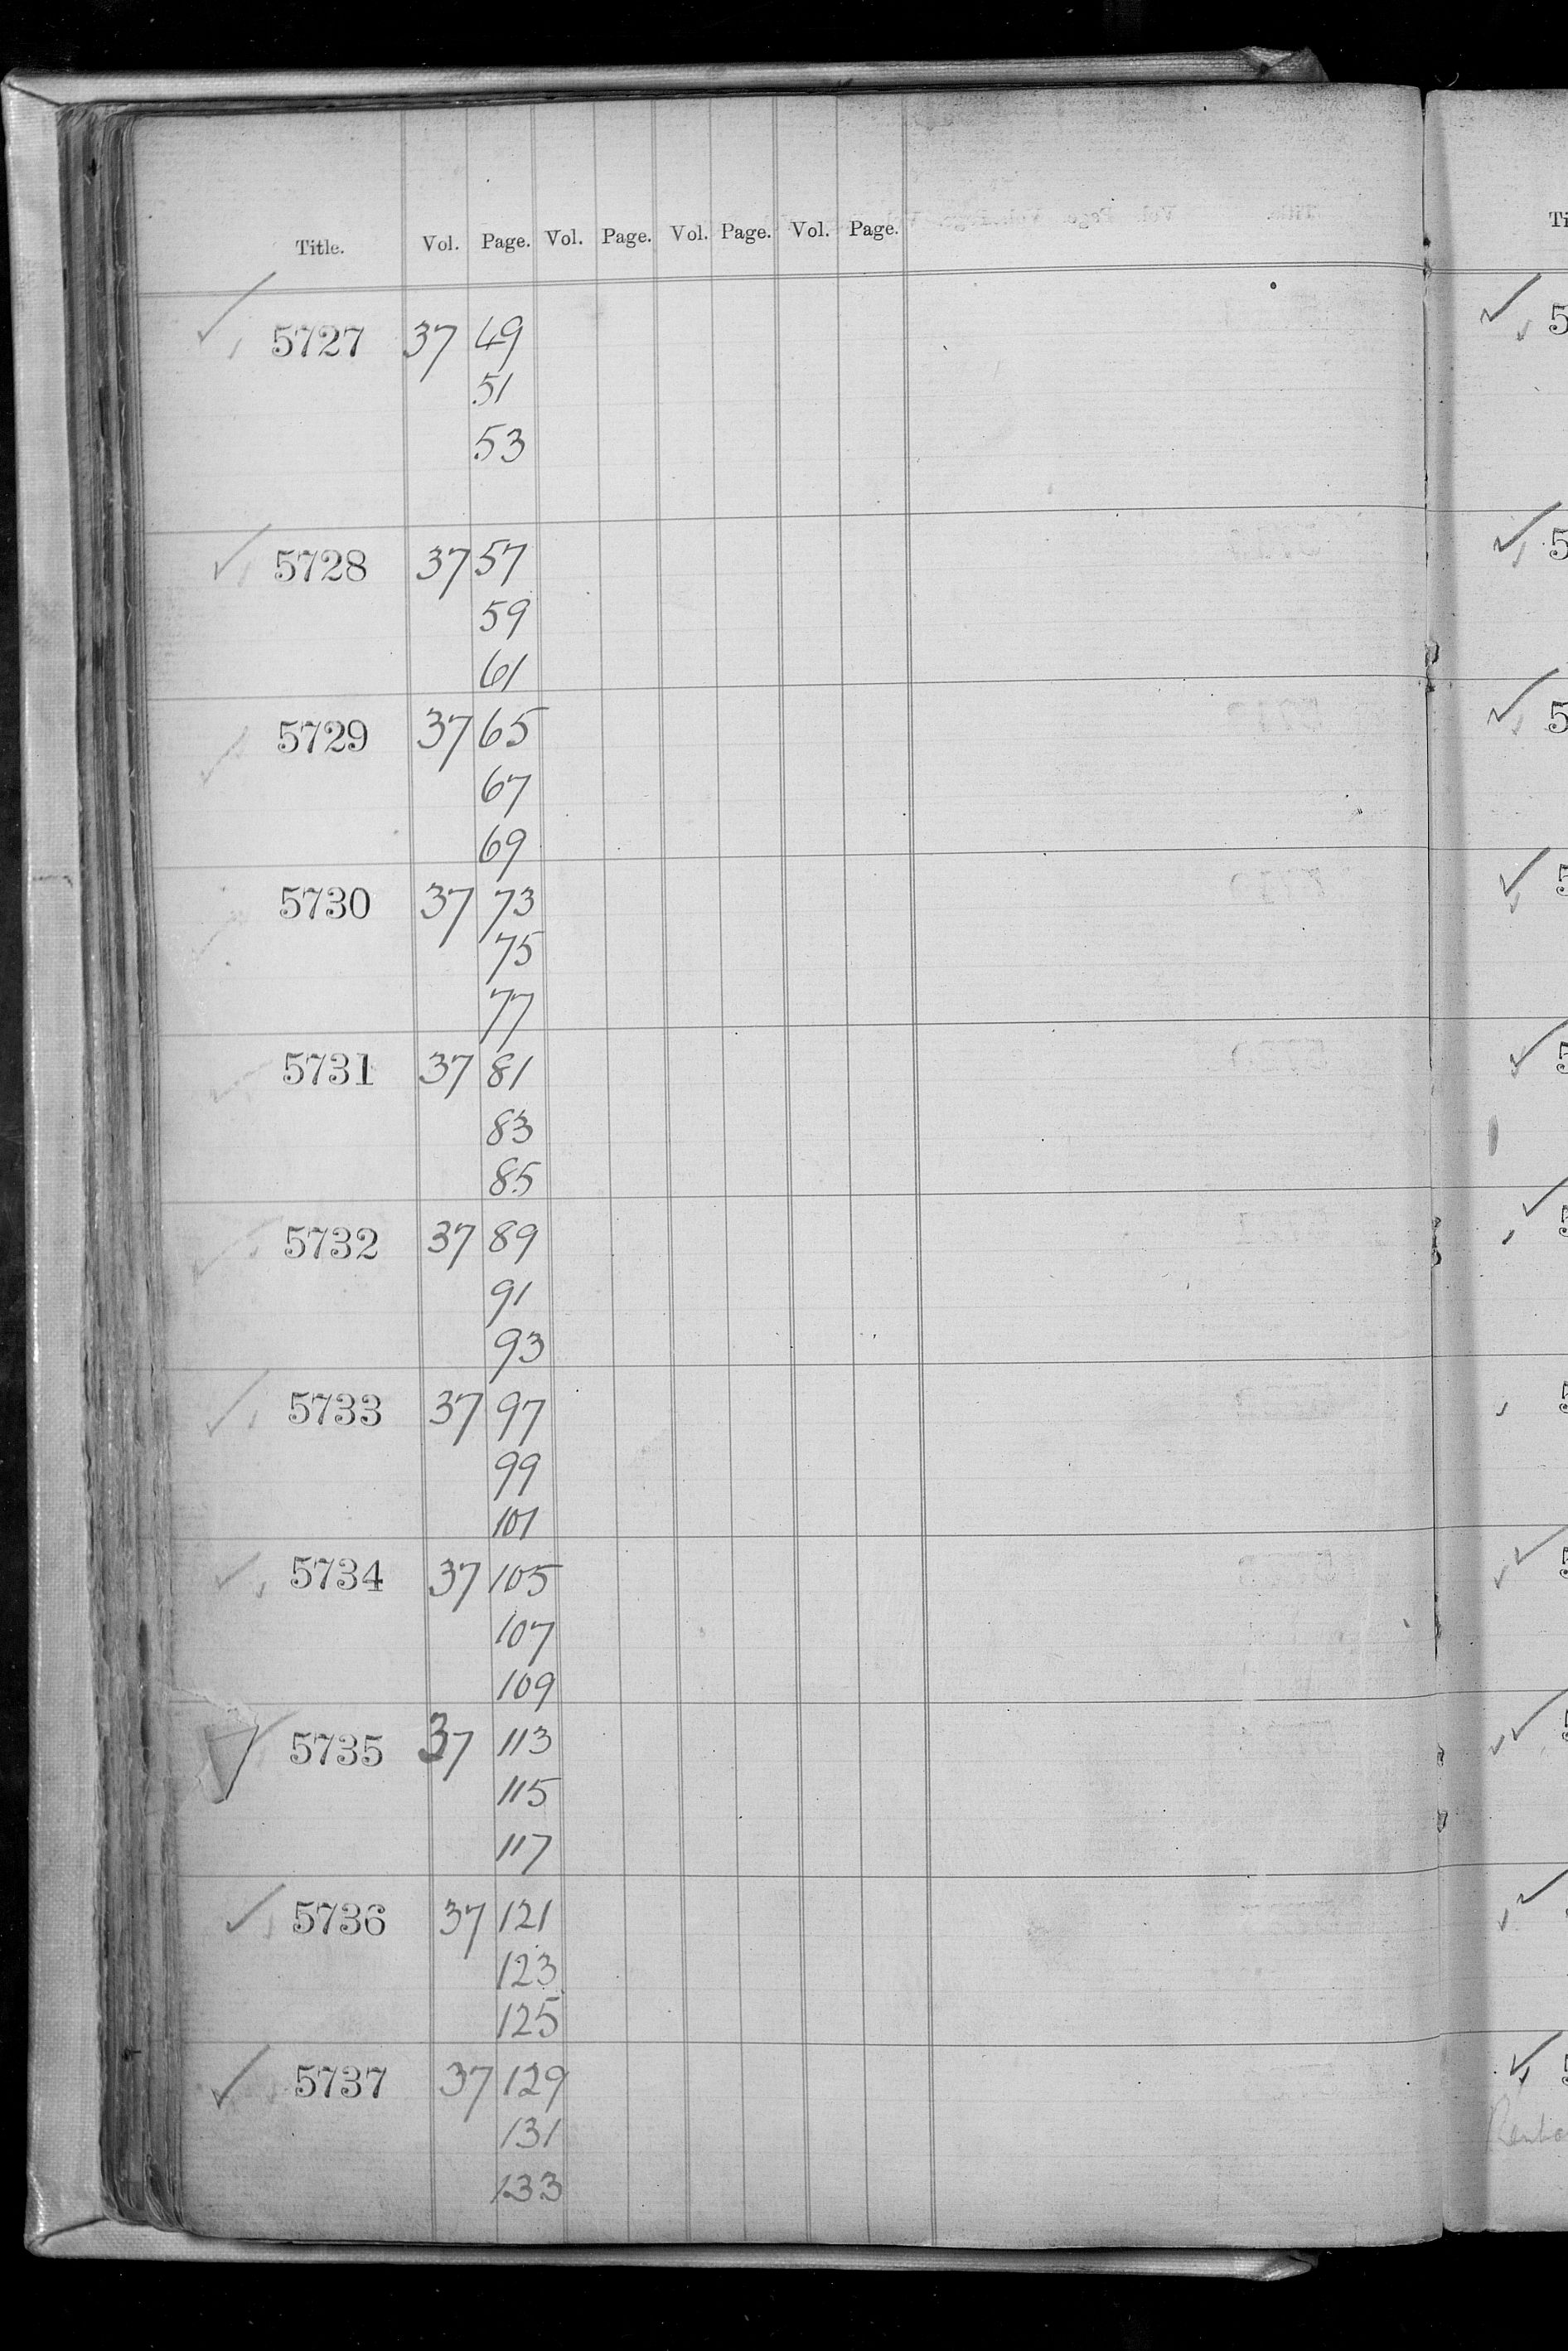 Title. Vol. Page. Vol. Page. Vol. Page. Vol. Page.
5727 37 49
51
53
5728 37 57
59
61
5729 37 65
67
69
5730 37 73
75
77
5731 37 81
83
85
5732 37 89
91
93
5733 37 97
99
101
5734 37 105
107
109
5735 37 113
115
117
5736 37 121
123
125
5737 37 129
131
133